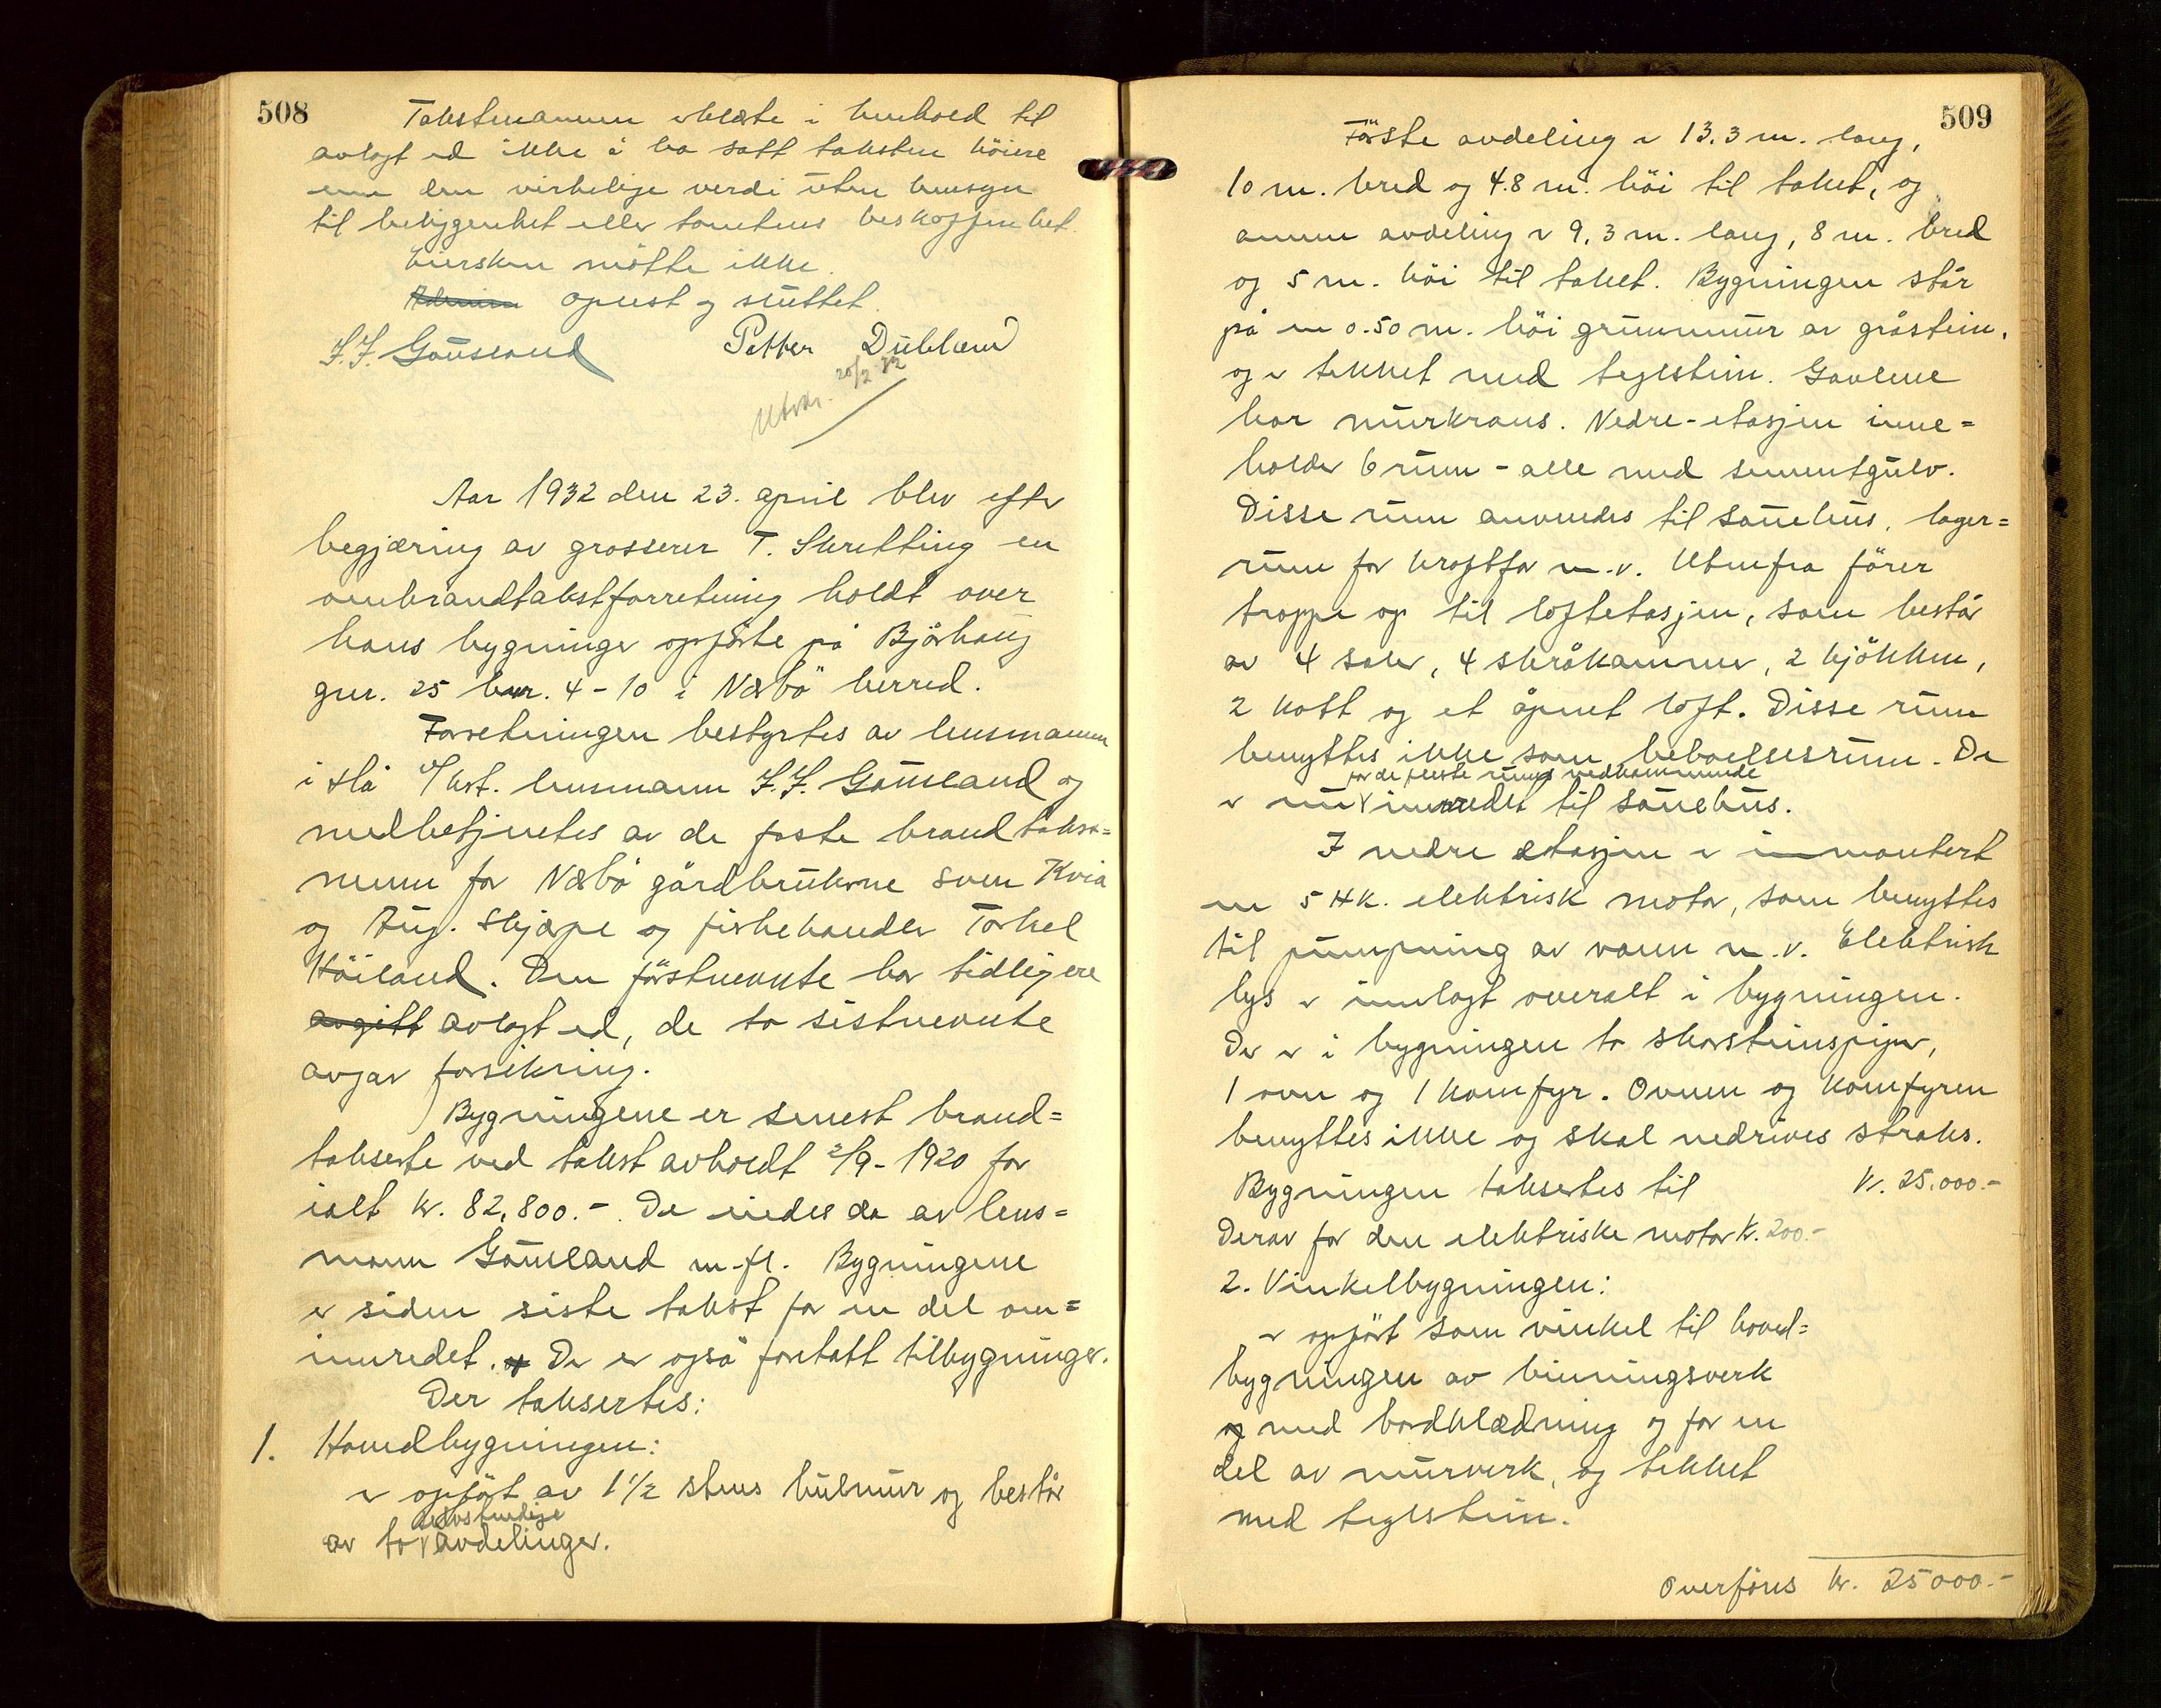 508
Takstmannen erklærte i henhold til
avlagt ed ikke å ha satt taksten höiere
enn den virkelige verdi uten hensyn
til beliggenhet eller tomtens beskaffenhet.
Eiersken mötte ikke.
oplest og sluttet.
J. J. Gausland Petter Dubland
Utskr. 20/2 32
Aar 1932 den 23. april blev efter
begjæring av grosserer T. Skretting en
ombrandtakstforretning holdt over
hans bygninger opförte på Bjorhaug
gnr. 25 bnr. 4-10 i Nærbö herred.
Forretningen bestyrtes av lensmannen
i Hå v/kst. lensmann J. J. Gausland og
medbetjentes av de faste brandtakst=
menn for Nærbö gårdbrukerne Sven Kvia
og Aug. Skjærpe og fiskehandler Torkel
Höiland. Den förstnevnte har tidligere
avgitt avlagt ed, de to sistnevnte
avgav forsikring.
Bygningene er senest brand=
takserte ved takst avholdt 2/9-1920 for
ialt kr. 82,800.-. De eiedes da av lens=
mann Gausland m. fl. Bygningene
er siden siste takst for en del om=
innredet. Der er også foretatt tilbygninger.
Der taksertes:
1. Hovedbygningen:
er opfört av 1 1/2 stens hulmur og består
selvstendige
av to avdelinger.
509
Förste avdeling er 13.3 m. lang,
10 m. bred og 4.8 m. höi til taket, og
annen avdeling er 9.3 m. lang, 8 m. bred
og 5 m. höi til taket. Bygningen står
på en 0.50 m. höi grunnmur av gråstein,
og er tekket med teglstein. Gavlene
har murkrans. Nedre-etasjen inne=
holder 6 rum - alle med sementgulv.
Disse rum anvendes til sauehus, lager=
rum for kraftfor m.v. Utenfra förer
trappe op til loftetasjen, som består
av 4 saler, 4 skråkammer, 2 kjökken,
2 kott og et åpent loft. Disse rum
benyttes ikke som beboelsesrum. De
for de fleste rums vedkommende
er nu innredet til sauehus.
I nedre etasjen er inmontert
en 5 HK. elektrisk motor, som benyttes
til pumpning av vann m.v. Elektrisk
lys er innlagt overalt i bygningen.
Der er i bygningen to skorsteinspiper,
1 ovn og 1 komfyr. Ovnen og komfyren
benyttes ikke og skal nedrives straks.
Bygningen taksertes til kr. 25.000.-
Derav for den elektriske motor kr. 200.-
2. Vinkelbygningen:
er opfört som vinkel til hoved=
bygningen av binningsverk
og med bordklædning og for en
del av murverk, og tekket
med teglstein.
Overföres kr. 25000.-